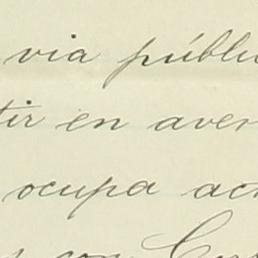 via públi
tir en aver
ocupa ac
con